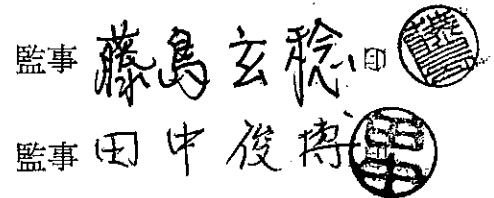 監事 藤島玄稔 印
監事 田中俊博